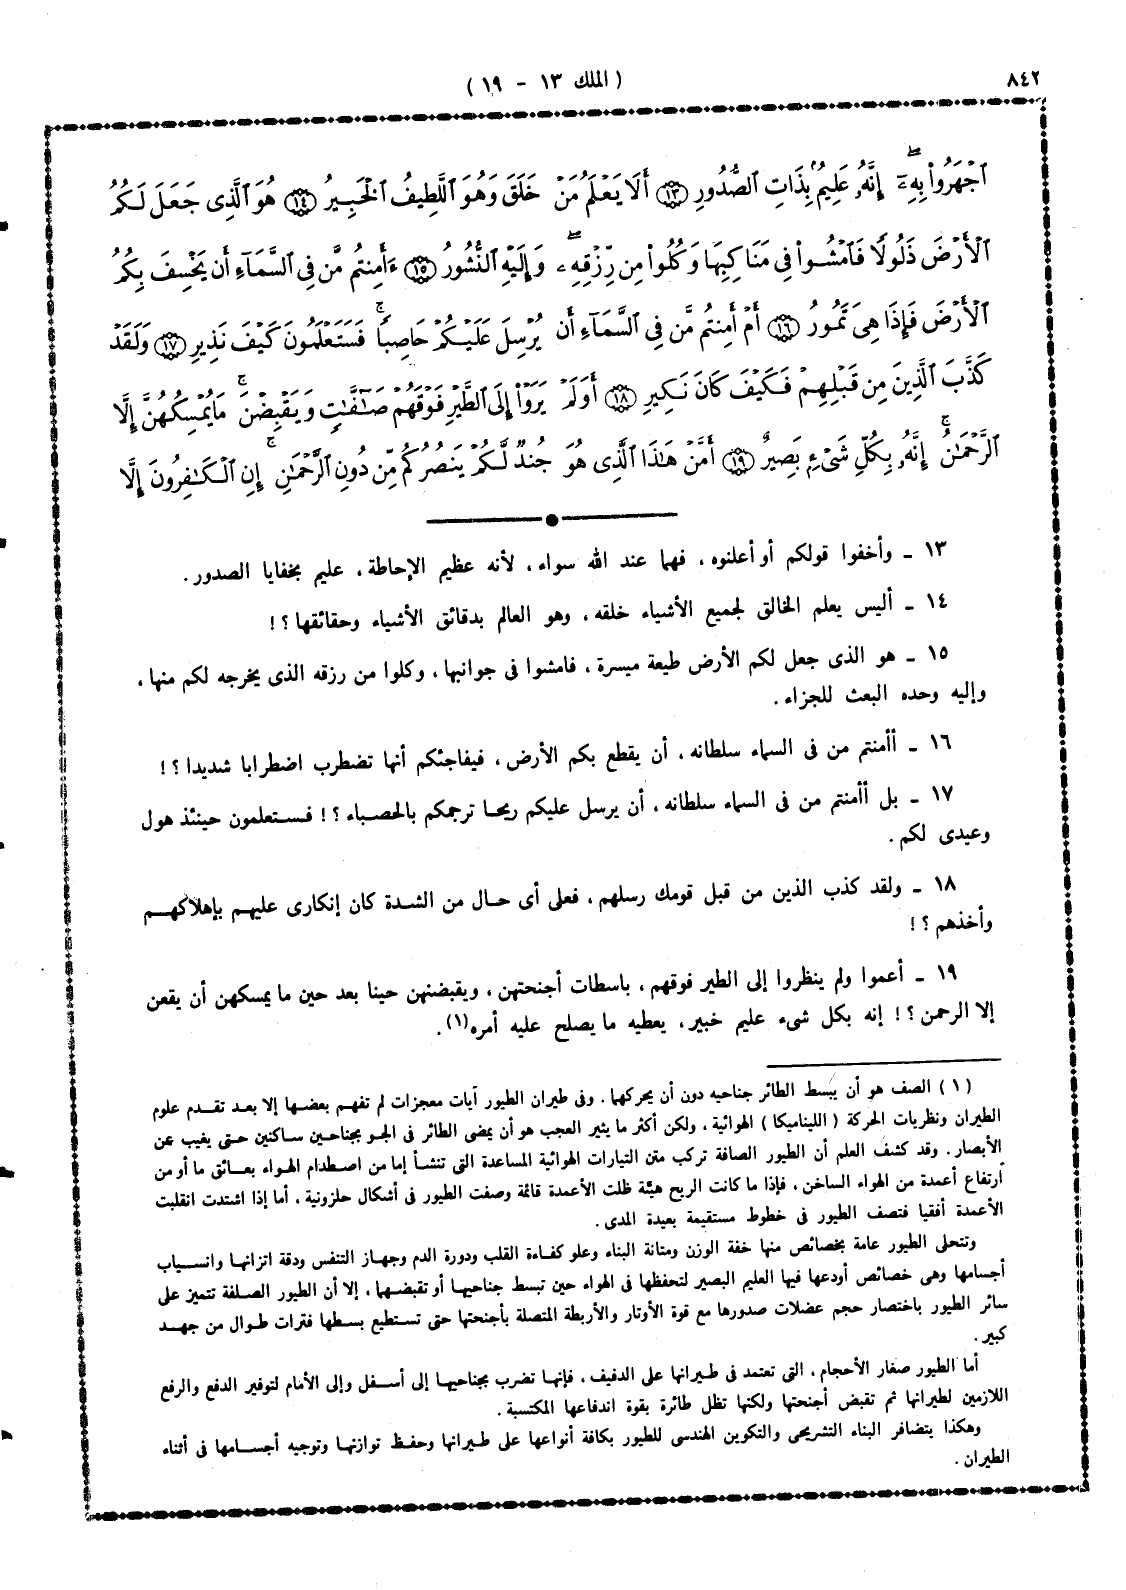 ٨٤٢
( الملك ١٣ – ١٩ )
ٱجْهَرُوا۟ بِهِۦٓ ۖ إِنَّهُۥ عَلِيمٌۢ بِذَاتِ ٱلصُّدُورِ ۝١٣ أَلَا يَعْلَمُ مَنْ خَلَقَ وَهُوَ ٱللَّطِيفُ ٱلْخَبِيرُ ۝١٤ هُوَ ٱلَّذِى جَعَلَ لَكُمُ
ٱلْأَرْضَ ذَلُولًا فَٱمْشُوا۟ فِى مَنَاكِبِهَا وَكُلُوا۟ مِن رِّزْقِهِۦ ۖ وَإِلَيْهِ ٱلنُّشُورُ ۝١٥ ءَأَمِنتُم مَّن فِى ٱلسَّمَآءِ أَن يَخْسِفَ بِكُمُ
ٱلْأَرْضَ فَإِذَا هِىَ تَمُورُ ۝١٦ أَمْ أَمِنتُم مَّن فِى ٱلسَّمَآءِ أَن يُرْسِلَ عَلَيْكُمْ حَاصِبًا ۖ فَسَتَعْلَمُونَ كَيْفَ نَذِيرِ ۝١٧ وَلَقَدْ
كَذَّبَ ٱلَّذِينَ مِن قَبْلِهِمْ فَكَيْفَ كَانَ نَكِيرِ ۝١٨ أَوَلَمْ يَرَوْا۟ إِلَى ٱلطَّيْرِ فَوْقَهُمْ صَـٰٓفَّـٰتٍ وَيَقْبِضْنَ ۚ مَا يُمْسِكُهُنَّ إِلَّا
ٱلرَّحْمَـٰنُ ۚ إِنَّهُۥ بِكُلِّ شَىْءٍۭ بَصِيرٌ ۝١٩ أَمَّنْ هَـٰذَا ٱلَّذِى هُوَ جُندٌ لَّكُمْ يَنصُرُكُم مِّن دُونِ ٱلرَّحْمَـٰنِ ۚ إِنِ ٱلْكَـٰفِرُونَ إِلَّا
١٣ ـ وأخفوا قولكم أو أعلنوه ، فهما عند الله سواء ، لأنه عظيم الإحاطة ، عليم بخفايا الصدور .
١٤ ـ أليس يعلم الخالق لجميع الأشياء خلقه ، وهو العالم بدقائق الأشياء وحقائقها ؟ !
١٥ ـ هو الذى جعل لكم الأرض طيعة ميسرة ، فامشوا فى جوانبها ، وكلوا من رزقه الذى يخرجه لكم منها ،
وإليه وحده البعث للجزاء .
١٦ ـ أأمنتم من فى السماء سلطانه ، أن يقطع بكم الأرض ، فيفاجئكم أنها تضطرب اضطرابا شديدا ؟ !
١٧ ـ بل أأمنتم من فى السماء سلطانه ، أن يرسل عليكم ريحا ترجمكم بالحصباء ؟ ! فستعلمون حينئذ هول
وعيدى لكم .
١٨ ـ ولقد كذب الذين من قبل قومك رسلهم ، فعلى أى حال من الشدة كان إنكارى عليهم بإهلاكهم
وأخذهم ؟ !
١٩ ـ أعموا ولم ينظروا إلى الطير فوقهم ، باسطات أجنحتهن ، ويقبضنهن حينا بعد حين ما يمسكهن أن يقعن
إلا الرحمن ؟ ! إنه بكل شىء عليم خبير ، يعطيه ما يصلح عليه أمره (١) .
( ١ ) الصف هو أن يبسط الطائر جناحيه دون أن يحركهما . وفى طيران الطيور آيات معجزات لم تفهم بعضها إلا بعد تقدم علوم
الطيران ونظريات الحركة ( الليناميكا ) الهوائية ، ولكن أكثر ما يثير العجب هو أن يمضى الطائر فى الجو بجناحين ساكنين حتى يغيب عن
الأبصار . وقد كشف العلم أن الطيور الصافة تركب متن التيارات الهوائية المساعدة التى تنشأ إما من اصطدام الهواء بعائق ما أو من
ارتفاع أعمدة من الهواء الساخن ، فإذا ما كانت الريح هيئة ظلت الأعمدة قائمة وصفت الطيور فى أشكال حلزونية ، أما إذا اشتدت انقلبت
الأعمدة أفقيا فتصف الطيور فى خطوط مستقيمة بعيدة المدى .
وتتحلى الطيور عامة بخصائص منها خفة الوزن ومتانة البناء وعلو كفاءة القلب ودورة الدم وجهاز التنفس ودقة اتزانها وانسياب
أجسامها وهى خصائص أودعها فيها العليم البصير لتحفظها فى الهواء حين تبسط جناحيها أو تقبضهما ، إلا أن الطيور الصلفة تتميز على
سائر الطيور باختصار حجم عضلات صدورها مع قوة الأوتار والأربطة المتصلة بأجنحتها حتى تستطيع بسطها فترات طوال من جهد
كبير .
أما الطيور صغار الأحجام ، التى تعتمد فى طيرانها على الدفيف ، فإنها تضرب بجناحيها إلى أسفل وإلى الأمام لتوفير الدفع والرفع
اللازمين لطيرانها ثم تقبض أجنحتها ولكنها تظل طائرة بقوة اندفاعها المكتسبة .
وهكذا يتضافر البناء التشريحى والتكوين الهندسى للطيور بكافة أنواعها على طيرانها وحفظ توازنها وتوجيه أجسامها فى أثناء
الطيران .